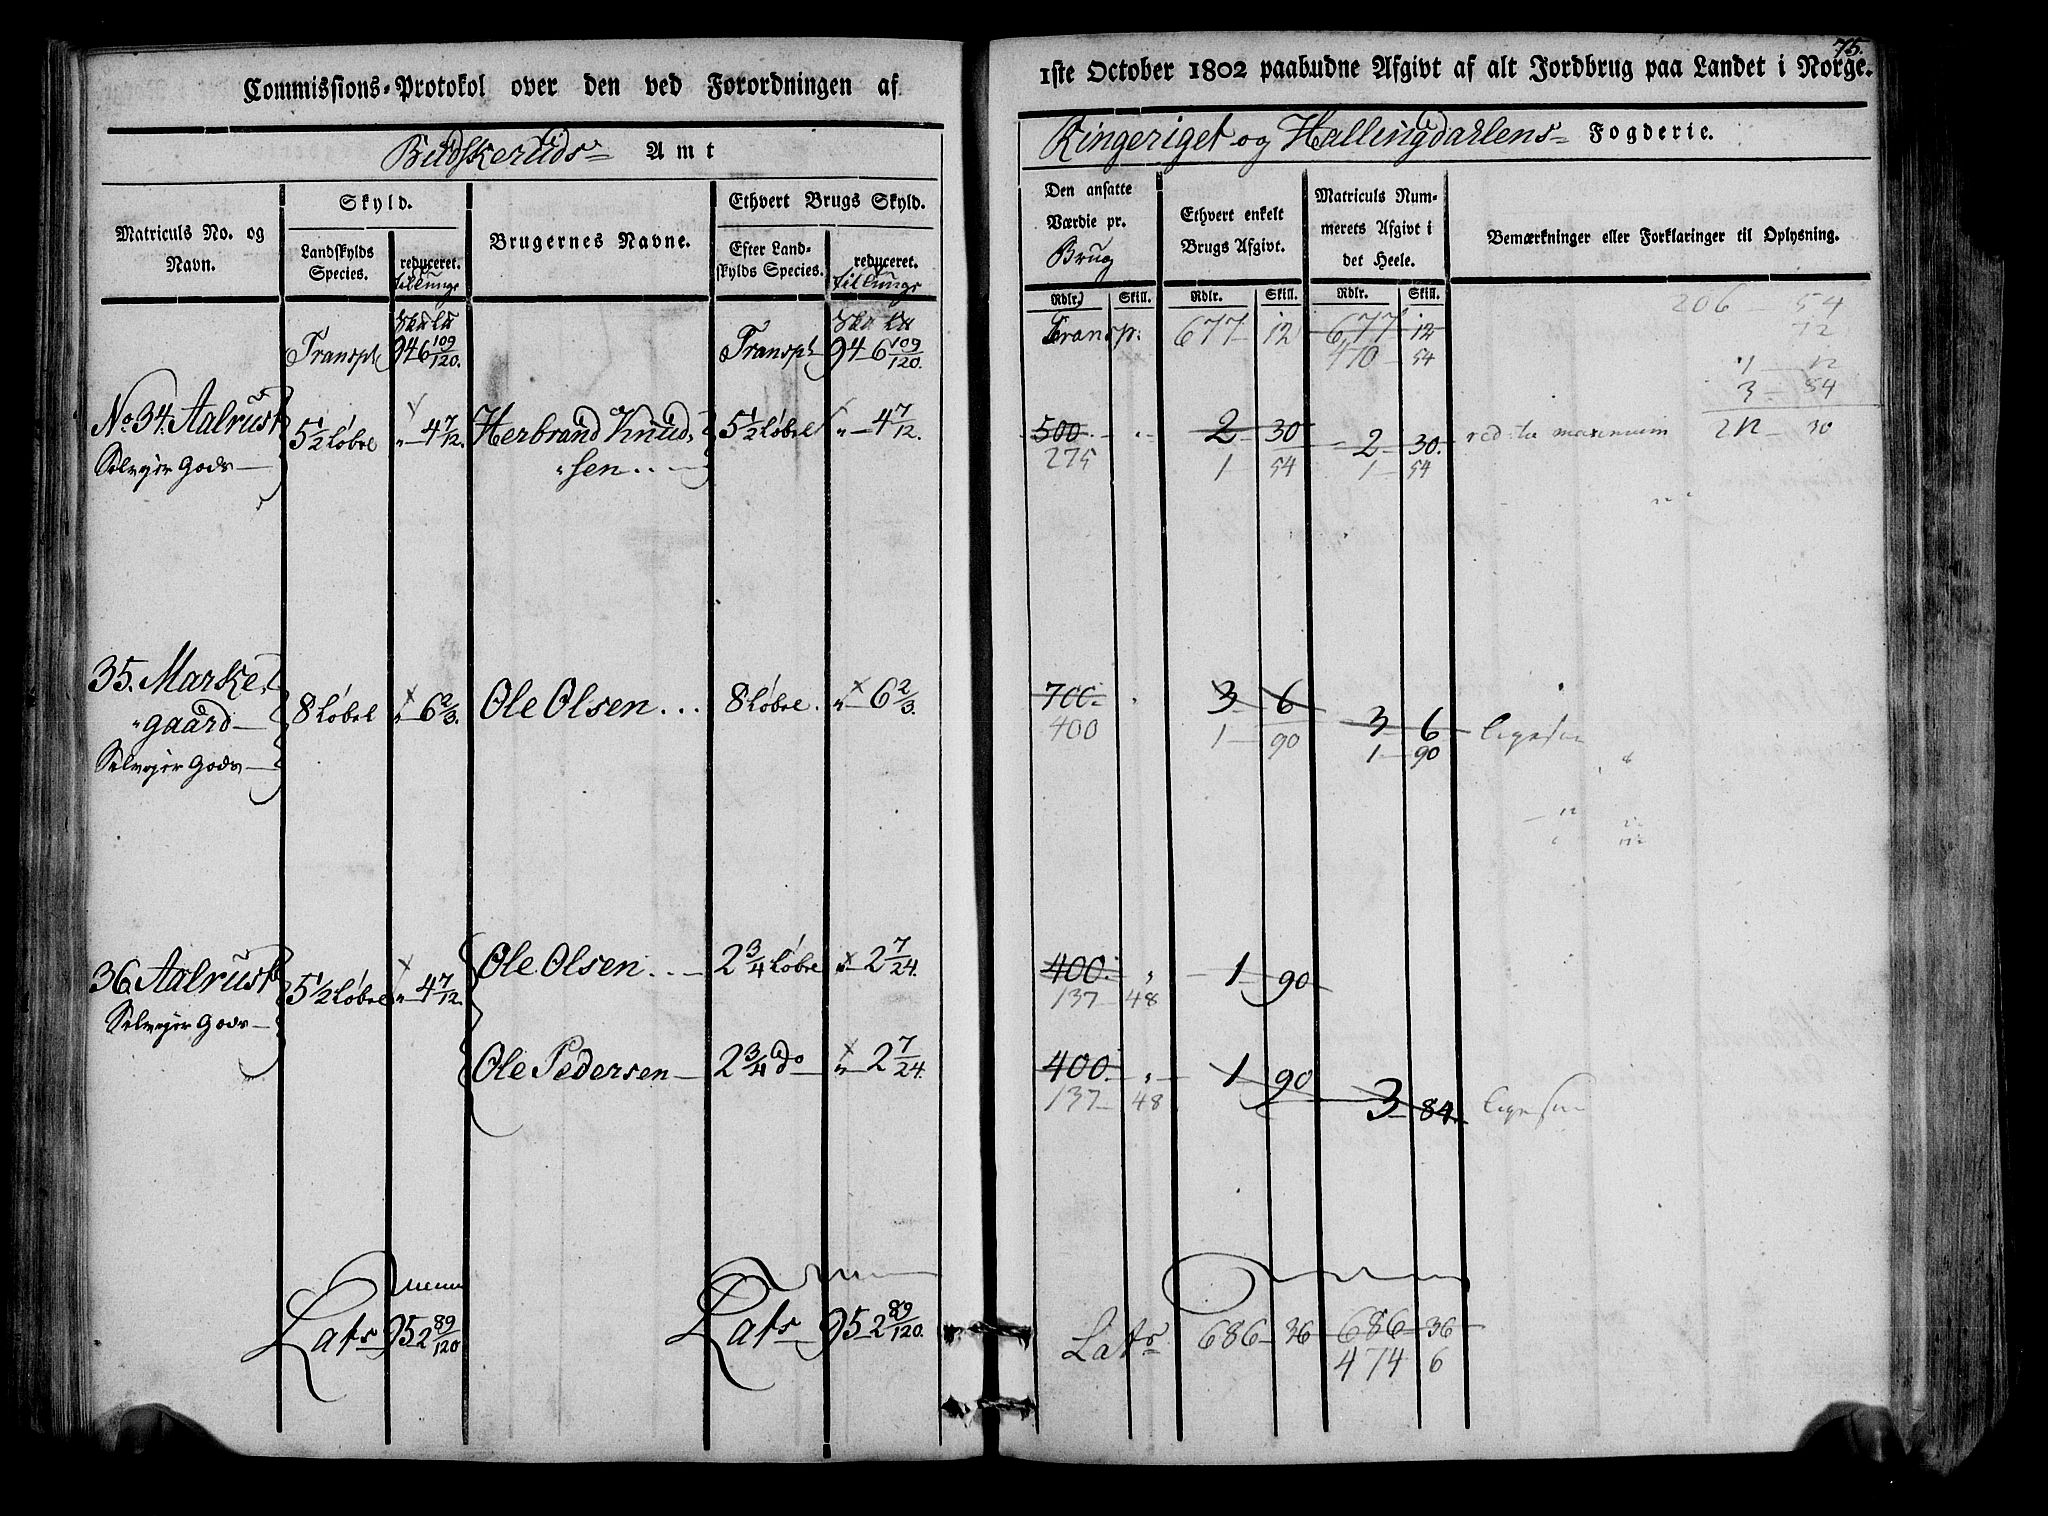 Commissions-Protokol over den ved Forordningen af
Budskeruds Amt
Matriculs No. og Navn.
Skyld.
Landskylds Species.
reduceret.
Brugernes Navne.
Ethvert Brugs Skyld.
Efter Landskylds Species.
reduceret.
Transpt 94 6 109/120. Transpt 94 6 109/120.
No. 34. Aalrust 5 1/2 Løbel " 4 7/12. Herbrand Knud, 5 1/2 Løbel " 4 7/12.
Selveier Gods — "sen . .
35. Marke,
"gaard — 8 Løbel " 6 2/3. Ole Olsen . . . 8 Løbel. " 6 2/3.
Selveier Gods —
36. Aalrust 5 1/2 Løbel " 4 7/12. Ole Olsen . . — 2 3/4 Løbel " 2 7/24.
Selveier Gods —
Ole Pedersen — 2 3/4 do " 2 7/24.
Lats 95 2 89/120 Lats 95 2 89/120.
75.
1ste October 1802 paabudne Afgivt af alt Jordbrug paa Landet i Norge.
Ringeriget og Hallingdahlens Fogderie.
Den ansatte Værdie pr. Brug
Ethvert enkelt Brugs Afgivt.
Matriculs Nummerets Afgivt i det Heele.
Bemærkninger eller Forklaringer til Oplysning.
Rdlr. Skill. Rdlr. Skill. Rdlr. Skill.
206 54
Transp: 677 12 677 12 72
470 54
1 12
3 54
500. 2 30 2 30. red. til maximum 212 30
275 1 54 1 54
700. 3 6
400 1 90 3 6 ligesaa
1 90
400. " 1 90
137 48
400. " 1 90
137 48 3 84. ligesaa
Lats 686 36 686 36
474 6